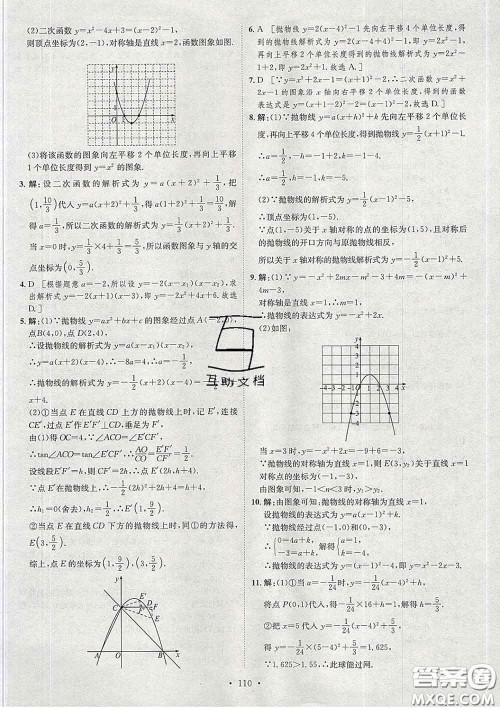 (2)二次函数 y=x²-4x+3=(x-2)²-1,
则顶点坐标为(2,-1),对称轴是直线 x=2,函数图象如图.
(3)将该函数的图象向左平移 2 个单位长度,再向上平移
1 个单位长度得到 y=x² 的图象.
3. 解:设二次函数的解析式为 y=a(x+2)²+1/3,把
(1,10/3)代入 y=a(x+2)²+1/3,得 a(1+2)²+1/3=10/3,解
得 a=1/3,所以二次函数的解析式为 y=1/3(x+2)²+1/3.
当 x=0 时,y=1/3×4+1/3=5/3,所以函数图象与 y 轴的交
点坐标为(0,5/3).
4. D [根据题意 a=-2,所以设 y=-2(x-x₁)(x-x₂),求
出解析式 y=-2(x+1)(x-3),即 y=-2x²+4x+6.故选
D.]
5. 解:(1)∵抛物线 y=ax²+bx+c 的图象经过点 A(-2,0),
点 B(4,0),点 D(2,4),
∴设抛物线的解析式为 y=a(x+2)(x-4),∴-8a=4,
∴a=-1/2,∴抛物线的解析式为 y=-1/2(x+2)(x-4)=
-1/2x²+x+4.
(2)①当点 E 在直线 CD 上方的抛物线上时,记 E′,连接
CE′,过 E′作 E′F′⊥CD,垂足为 F′.
由(1)得 OC=4,∵∠ACO=∠E′CF′,
∴tan∠ACO=tan∠E′CF′,∴AO/CO=E′F′/CF′=1/2.
设线段 E′F′=h,则 CF′=2h,∴点 E′(2h,h+4).
∵点 E′在抛物线上,∴-1/2(2h)²+2h+4=h+4,
∴h₁=0(舍去),h₂=1/2,∴E′(1,9/2).
②当点 E 在直线 CD 下方的抛物线上时,同①的方法得,
E(3,5/2).
综上,点 E 的坐标为(1,9/2),(3,5/2).
6. A [抛物线 y=2(x-4)²-1 先向左平移 4 个单位长度,得
到的抛物线解析式为 y=2(x-4+4)²-1,即 y=2x²-1,
再向上平移 2 个单位长度得到的抛物线解析式为 y=
2x²-1+2,即 y=2x²+1.故选 A.]
7. D [∵y=x²+2x-1=(x+1)²-2,∴二次函数 y=x²+
2x-1 的图象沿 x 轴向右平移 2 个单位长度,得到的函数
表达式是 y=(x+1-2)²-2=(x-1)²-2.故选 D.]
8. 解:(1)∵抛物线 y=a(x+h)²+k 先向左平移 2 个单位长
度,再向上平移 4 个单位长度,得到抛物线 y=-1/2(x+1)²-1,
∴a=-1/2,h=-1,k=-5.
(2)∵抛物线的解析式为 y=-1/2(x-1)²-5,
∴顶点坐标为(1,-5).
∵点(1,-5)关于 x 轴对称的点的坐标为(1,5),且关于 x
轴对称的抛物线的开口方向与原抛物线相反,
所以关于 x 轴对称的抛物线的解析式为 y=1/2(x-1)²+5.
9. 解:(1)∵y=-x²+2mx-m²-m+3=-(x-m)²-m+3,
对称轴是直线 x=m=1,
∴抛物线的表达式为 y=-x²+2x+1.
(2)如图:
当 x=3 时,y=-x²+2x+1=-9+6+1=-2.
∵抛物线的对称轴为直线 x=1,∴(3,-2)关于直线 x=1
的对称点为(-1,-2).
由图象可知,-1<n<3 时,y₁>y₂.
10. 解:由图象可知抛物线的对称轴为直线 x=1,
设抛物线的表达式为 y=a(x-1)²+k.
∵抛物线经过点(-1,0)和(0,-3),
∴{0=4a+k,-3=a+k.解得{a=1,k=-4.
∴抛物线的表达式为 y=(x-1)²-4,即 y=x²-2x-3.
11. 解:(1)①当 a=-1/24时,y=-1/24(x-4)²+h,
将点 P(0,1)代入,得-1/24×16+h=1,解得 h=5/3.
②把 x=5 代入 y=-1/24(x-4)²+5/3,
得 y=-1/24×(5-4)²+5/3=1.625,
∵1.625>1.55,∴此球能过网.
互助文档
110
答案圈
MXQE.COM